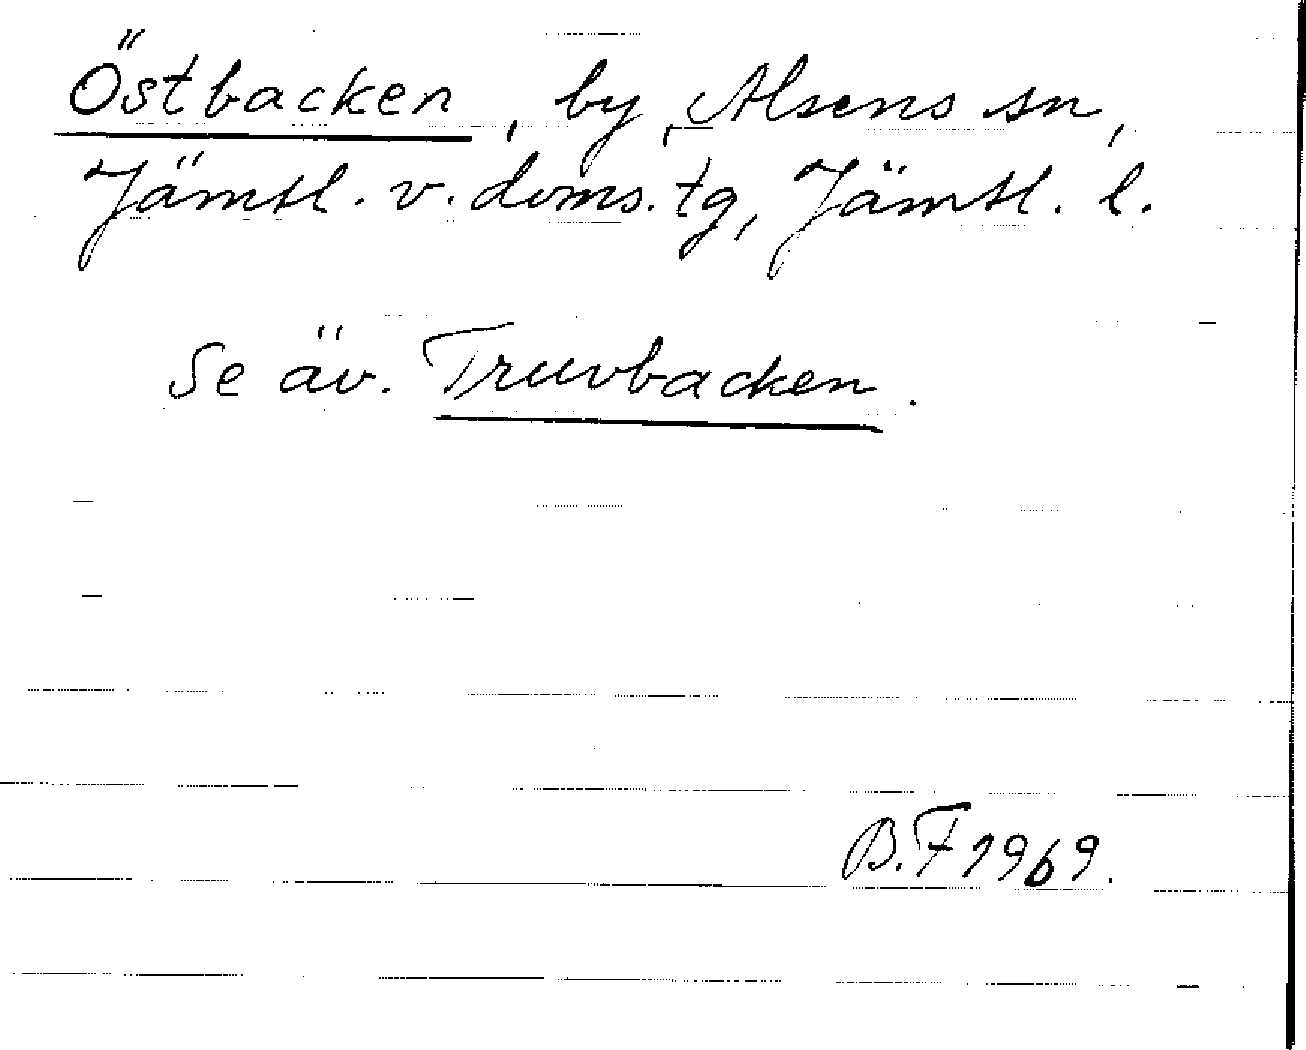 Östbacken, by, Alsens sn,
Jämtl. v. doms. tg, Jämtl. l.
Se äv. Truvbacken.
B.F 1969.